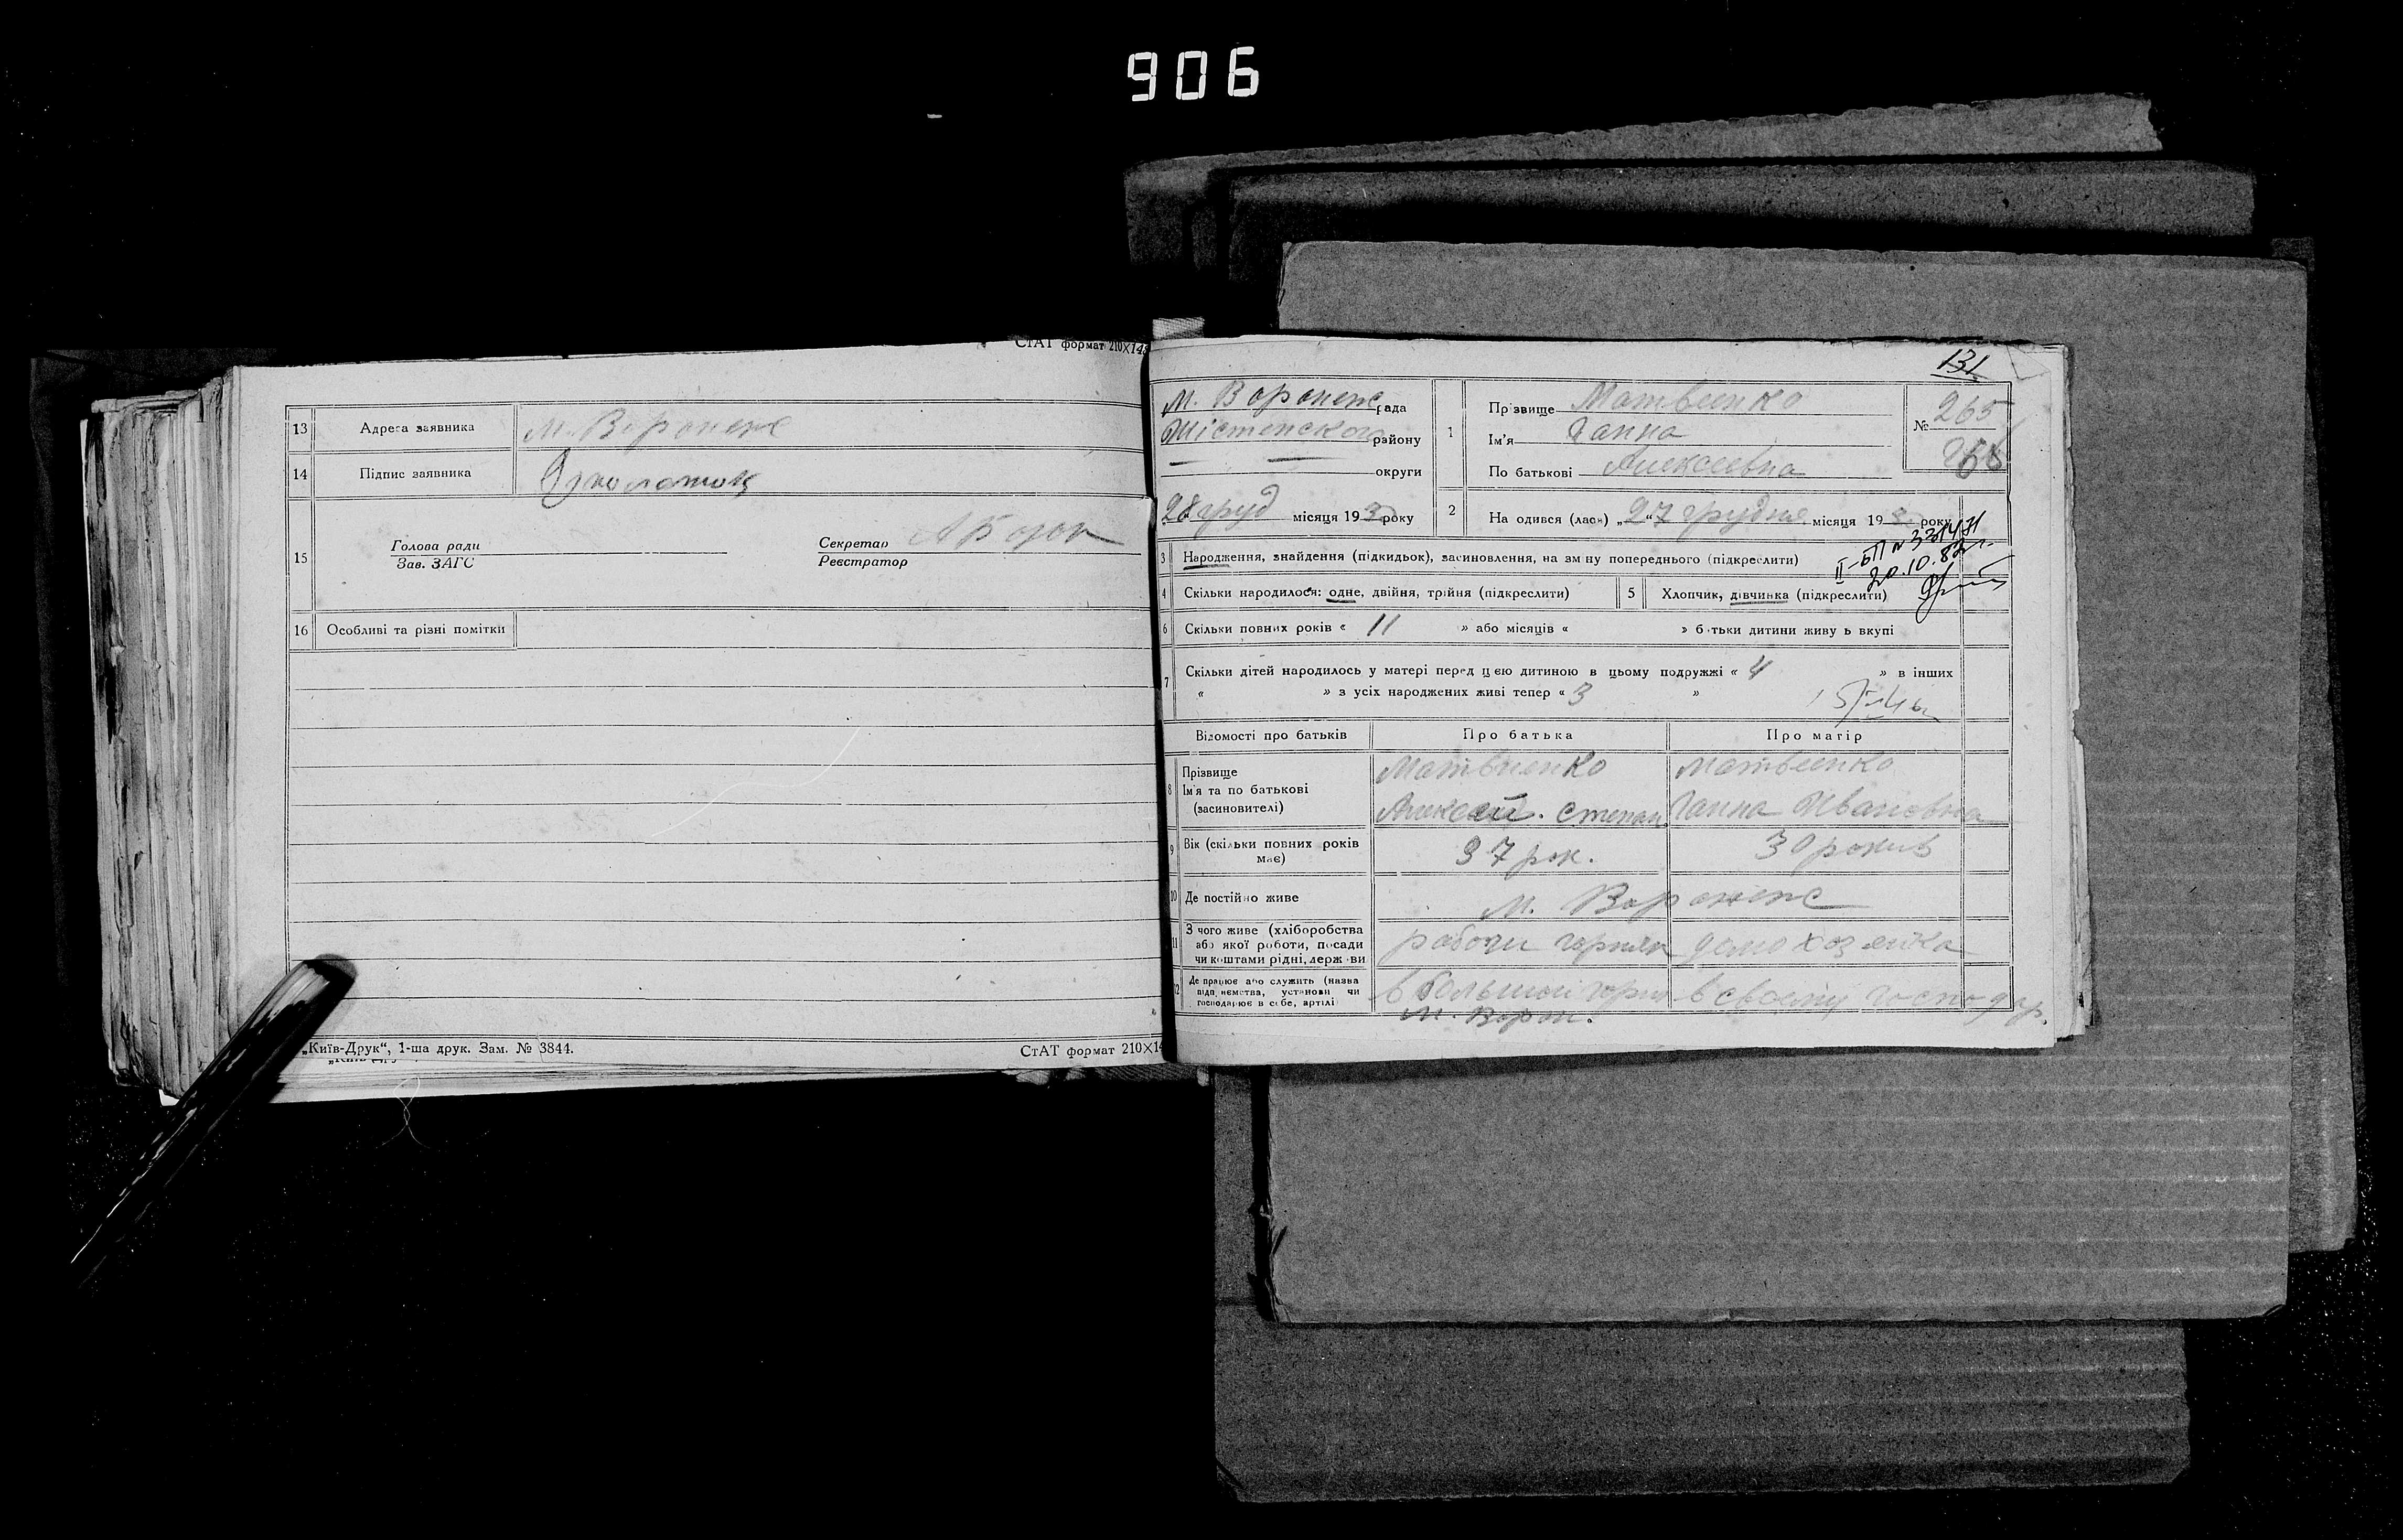 906
СтАТ формат 210×148
13 Адреса заявника м. Воронеж
14 Підпис заявника
15 Голова ради
Зав. ЗАГС
Секретар
Реєстратор
16 Особливі та різні помітки
„Київ-Друк“, 1-ша друк. Зам. № 3844.
СтАТ формат 210×14
131
м. Воронеж рада
району
округи
28 груд місяця 193 року
1 Прізвище Матвеенко
Ім'я Ганна
По батькові Алексеевна
№ 265
2 На одився (лася) „27“ грудня місяця 193 року
II-БП № 331471
20.10.82г.
3 Народження, знайдення (підкидьок), засиновлення, на зміну попереднього (підкреслити)
4 Скільки народилося: одне, двійня, трійня (підкреслити)
5 Хлопчик, дівчинка (підкреслити)
6 Скільки повних років « 11 » або місяців « » батьки дитини живуть вкупі
7 Скільки дітей народилось у матері перед цією дитиною в цьому подружжі « 4 » в інших
« » з усіх народжених живі тепер « 3 »
Відомості про батьків Про батька Про матір
8 Прізвище
Ім'я та по батькові
(засиновителі)
Матвиенко
Алексей. Степан
Матвеенко
Ганна Ивановна
9 Вік (скільки повних років
має)
37 рок.
30 рокив
10 Де постійно живе м. Воронеж
11 З чого живе (хліборобства
або якої роботи, посади
чи коштами рідні, держави
рабочи
домохозяйка
12 Де працює або служить (назва
підприємства, установи чи
господарює в себе, артілі
в большой
м. Ворон.
в своему господар.